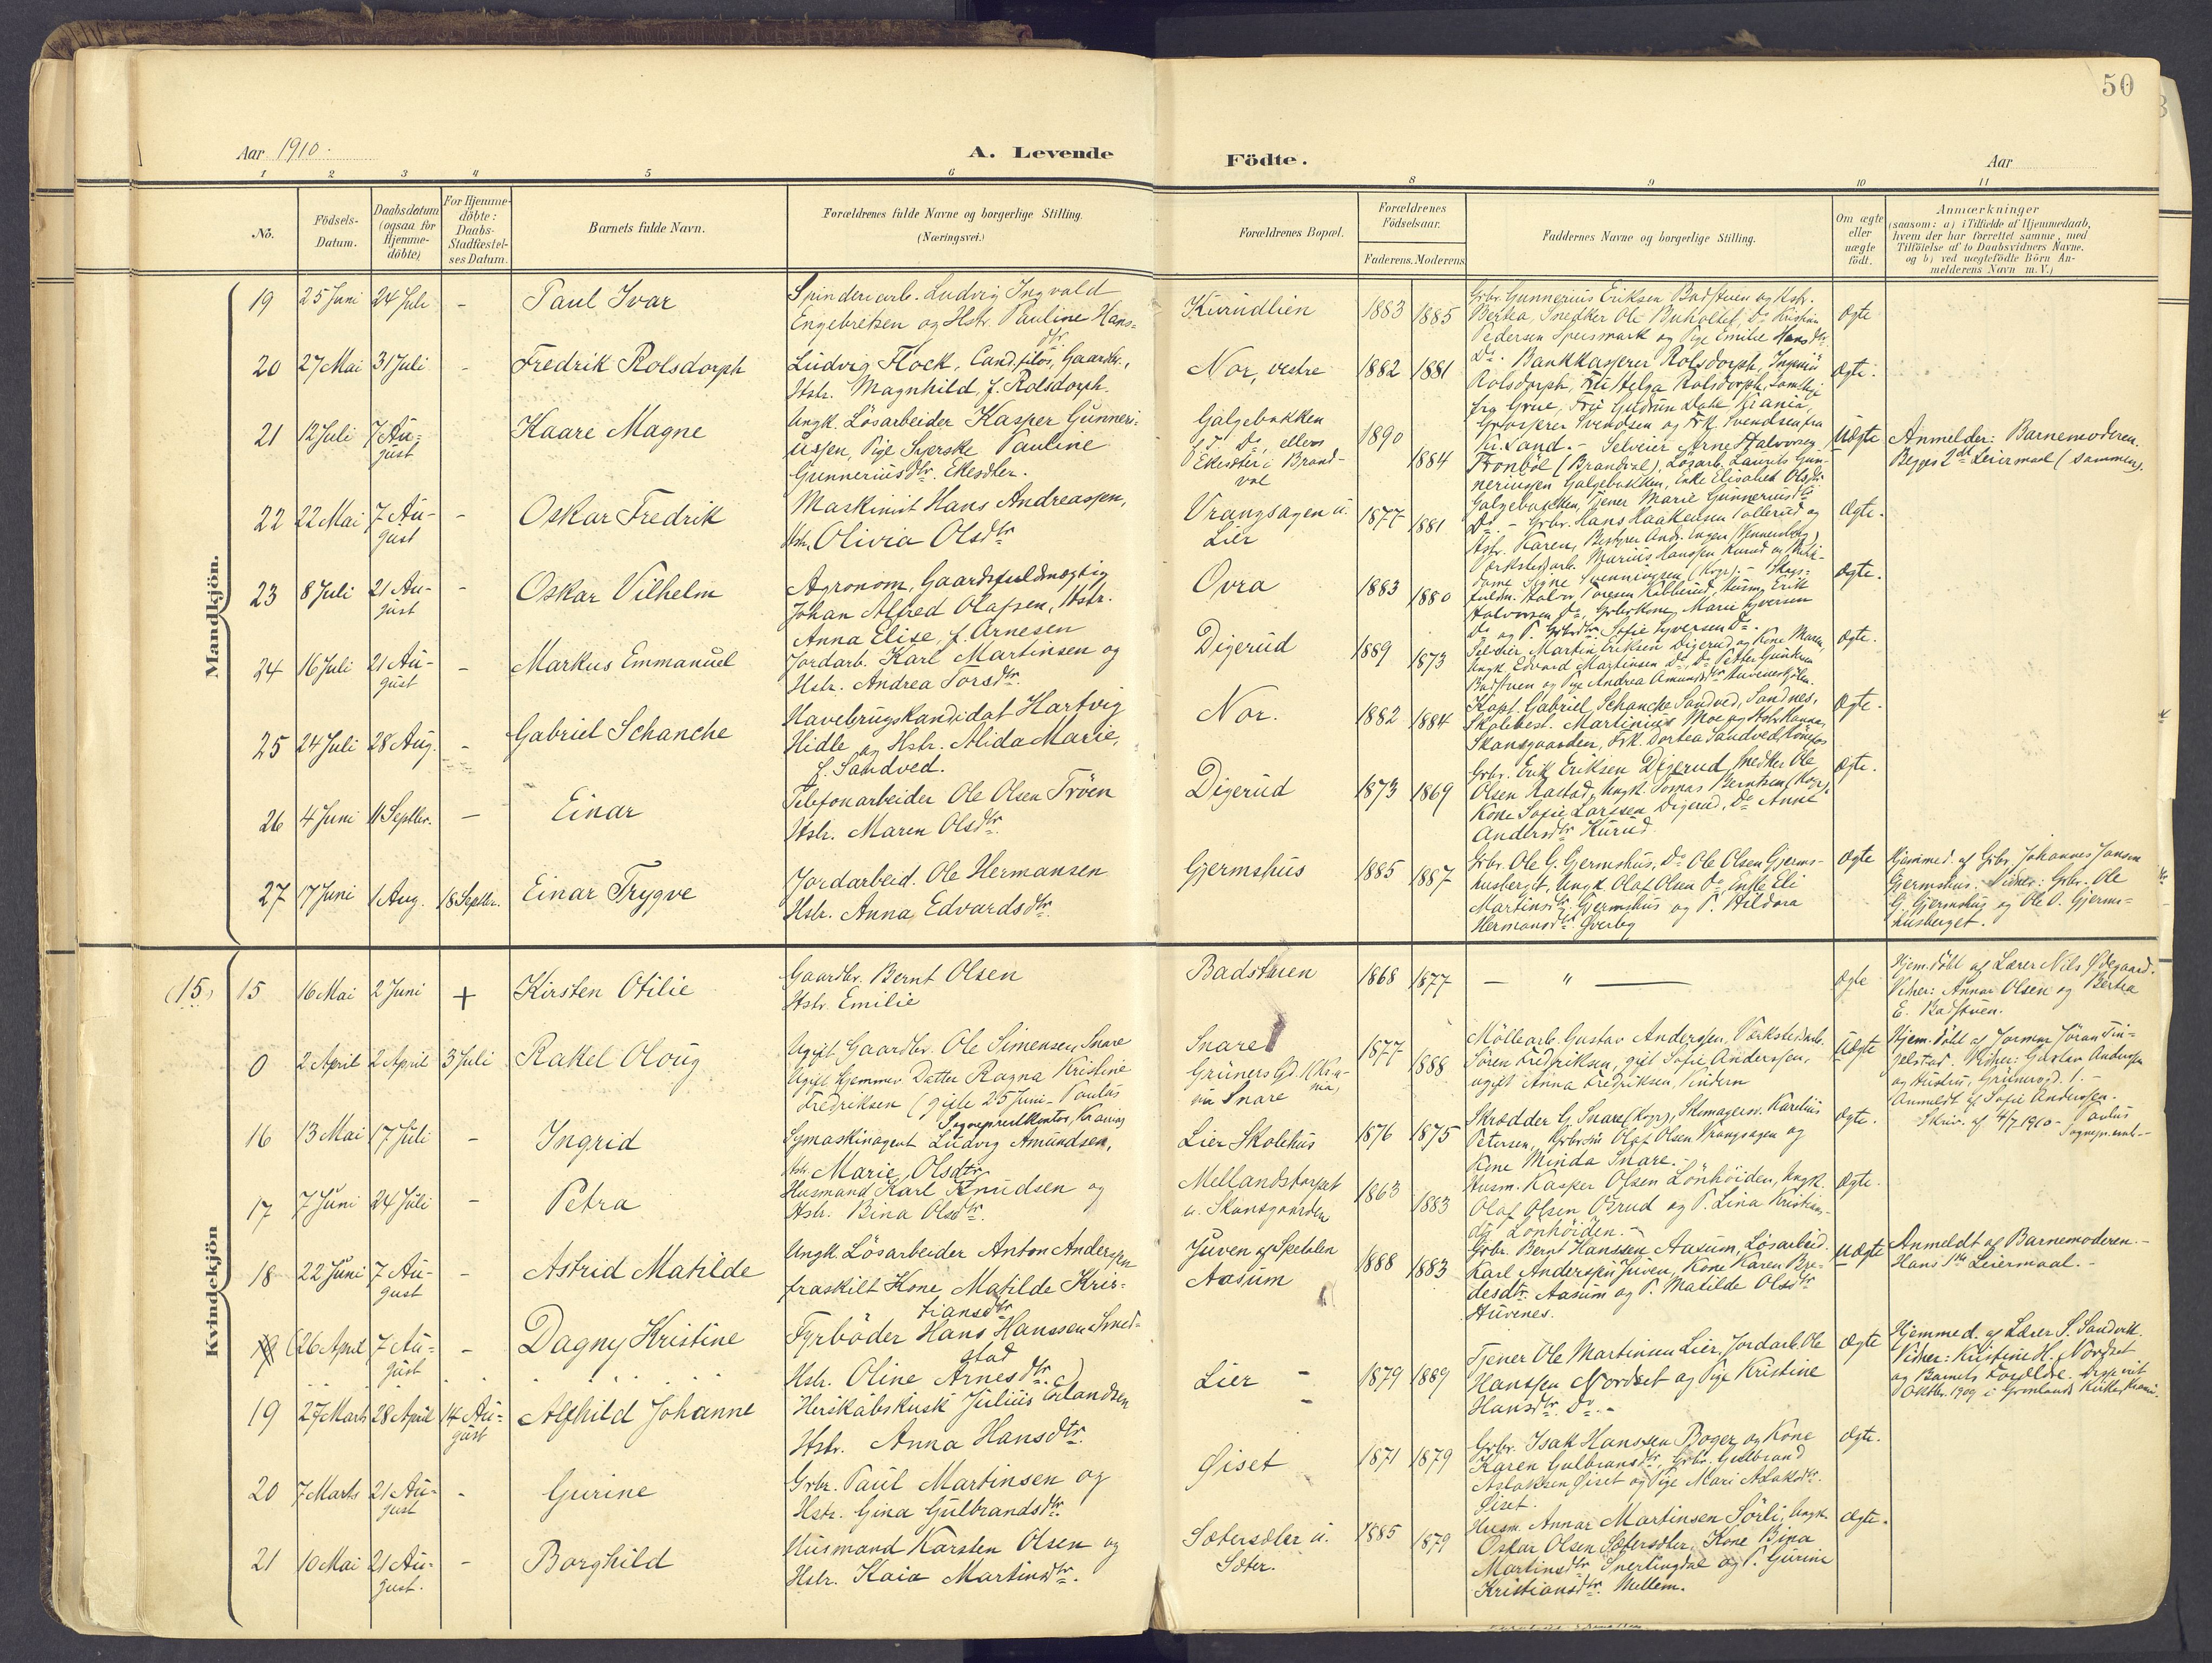 50
Aar 1910.
A. Levende
Födte.
Aar
1 2 3 4 5 6 8 9 10 11
No.
Födsels-
Datum.
Daabsdatum
(ogsaa for
Hjemme-
döbte)
For Hjemme-
döbte:
Daabs-
Stadfæstel-
ses Datum.
Barnets fulde Navn.
Forældrenes fulde Navne og borgerlige Stilling.
(Næringsvei.)
Forældrenes Bopæl.
Forældrenes
Födselsaar.
Faderens. Moderens.
Faddernes Navne og borgerlige Stilling.
Om ægte
eller
uægte
födt.
Anmærkninger
(saasom: a) i Tilfælde af Hjemmedaab,
hvem der har forrettet samme, med
Tilföielse af to Daabsvidners Navne,
og b) ved uægtefödte Börn An-
melderens Navn m. V.)
Mandkjön.
19 25 Juni 24 Juli - Paul Ivar
Spinderiarb. Ludvig Ingvald
Engebretsen og Hstr. Pauline Hans-
dtr.
Kurudlien 1883 1885
Grbr. Gunnerius Eriksen Badstuen og Hstr.
Bertea, Snedker Ole Buholtet, Do Kristian
Pedersen Speismark og Pige Emilie Hansdtr
Do.
ægte
20 27 Mai 31 Juli - Fredrik Rolsdorph
Ludvig Flock, Cand. filos, Gaardbr.,
Hstr. Magnhild, f. Rolsdorph.
Nor, vestre 1882 1881
Bankkasserer Rolsdorph, Ingeniör
Rolsdorph, Frk Helga Rolsdorph, samtlige
fra Grue, Fru Gudrun Dahl, Krania,
Grosserer Svendsen og Frk. Svendsen fra
Kr.sand.
ægte.
21 12 Juli 7 Au-
gust
Kaare Magne
Ungk. Lösarbeider Kasper Gunneri-
ussen, Pige Syerske Pauline
Gunneriusdtr. Ekesæter.
Galgebakken
p.t. Do, ellers
Ekesæter i Brand-
val
1890 1884
Selveier Arne Halvorsen
Fronböl (Brandval), Lösarb. Lauritz Gun-
neriussen Galgebakken, Enke Elisabet Olsdtr
Galgebakken, Tjener Marie Gunneriusdtr
Do.
uægte
Anmelder: Barnemoderen.
Begges 2det Leiermaal (sammen).
22 22 Mai 7 Au-
gust
- Oskar Fredrik
Maskinist Hans Andreassen,
Hstr. Olivia Olsdtr
Vrangsagen u.
Lier
1877 1881
Grbr. Hans Haakensen Tollerud og
Hstr. Karen, Bestyrer And. Enger (Kennersberg)
Værkstedarb. Marius Hanssen Kurud og Butik-
dame Signe Svenningsen (Kgvr).
ægte.
23 8 Juli 21 Au-
gust
- Oskar Vilhelm
Agronom, Gaardsfuldmægtig
Johan Alfred Olafsen, Hstr.
Anna Elise, f. Arnesen
Ovra 1883 1880
Skogs-
fuldm. Halvor Toresen Kabberud, Husm. Erik
Halvorsen Do, Grbrkone Marie Syversen
Do og P. Grbrdtr. Sofie Syversen Do.
ægte.
24 16 Juli 21 Au-
gust
- Markus Emmanuel
Jordarb. Karl Martinsen og
Hstr. Andrea Torsdtr.
Digerud 1889 1873
Selveier Martin Eriksen Digerud og Kone Maren,
Ungk. Edvard Martinsen Do, Do Petter Gundersen
Badstuen og Pige Andrea Amundsdtr
ægte.
25 24 Juli 28 Aug. - Gabriel Schanche
Havebrugskandidat Hartvig
Hidle og Hstr. Alida Marie,
f. Sandved.
Nor. 1882 1884
Kapt. Gabriel Schanche Sandved, Sandnes,
Skolebest. Martinius Moe og Hstr. Hanna,
Skansgaarden, Frk. Dortea Sandved, Hönefos
ægte.
26 4 Juni 11 Septbr. - Einar
Telefonarbeider Ole Olsen Tröen
Hstr. Maren Olsdtr.
Digerud 1873 1869
Grbr. Erik Eriksen Digerud, Snedker Ole
Olsen Rastad, Ungk. Tomas Berntsen (Kgvr).
Kone Sofie Larssen Digerud, Do Anne
Andersdtr Kurud.
ægte.
27 17 Juni 1 Aug. 18 Septbr. Einar Trygve
Jordarbeid. Ole Hermansen
Hstr. Anna Edvardsdtr.
Gjermshus 1885 1887
Grbr. Ole G. Gjermshus, Do Ole Olsen Gjerms-
husberget, Ungk. Olaf Olsen Do, Enke Eli
Martinsdtr. Gjermshus og P. Hildora
Hermansdtr Gverby
ægte
Hjemmed. af Grbr. Johannes Jansen
Gjermshus. Vidner: Grbr. Ole
G. Gjermshus og Ole O. Gjerms-
husberget.
Kvindekjön
(15) 15 16 Mai 2 Juni + Kirsten Otilie
Gaardbr. Bernt Olsen
Hstr. Emilie
Badstuen 1868 1877
- " -
ægte
Hjem.döbt af Lærer Nils Ödegaard.
Vidner: Annar Olsen og Bertea
E. Badstuen.
0 2 April 2 April 3 Juli Rakel Oloug
Ugift Gaardbr. Ole Simensen Snare
Ugift hjemmev. Datter Ragna Kristine
Fredriksen (gifte 25 Juni - Paulus
Sogneprestkontor, Krania)
Snare
Grüners Gd. 1 (Kra-
nia)
nu Snare
1877 1888
Möllearb. Gustav Anderssen, Verkstedarb.
Sören Fredriksen, gift Sofie Anderssen,
ugift Anna Fredriksen, Vindern
uægte
Hjem.döbt af Jormor Jöran Tin-
gelstad. Vidner: Gustav Anderssen
og Hustru, Grünersgd. 1. -
Anmeldt af Sofie Anderssen.
Skriv. af 4/7 1910 - Paulus
Sognepr.emb.-
16 13 Mai 17 Juli - Ingrid
Symaskinagent Ludvig Amundsen,
Hstr. Marie Olsdtr
Lier Skolehus 1876 1875
Skrædder G. Snare (Kgvr), Skomagersv. Karelius
Petersen, Grbrsön Olaf Olsen Vrangsagen og
Kone Minda Snare.-
ægte.
17 7 Juni 24 Juli - Petra
Husmand Karl Knudsen og
Hstr. Bina Olsdtr.
Mellandstorpet
u. Skansgaarden
1863 1883
Husm. Kasper Olsen Lönhöiden, Ungk.
Olaf Olsen Osrud og P. Lina Kristians-
dtr Lönhöiden.-
ægte.
18 22 Juni 7 Au-
gust
- Astrid Matilde
Ungk. Lösarbeider Anton Anderssen
fraskilt Kone Matilde Kris-
tiansdtr
Juven og Spetalen
Aasum
1888 1883
Grbr. Bernt Hanssen Aasum, Lösarbeid.
Karl Anderssen Juven, Kone Karen Bre-
desdtr. Aasum og P. Matilde Olsdtr
Huvenes.
uægte
Anmeldt af Barnemoderen.-
Hans 1ste Leiermaal.-
19 (26 April 7 Au-
gust
- Dagny Kristine
Fyrböder Hans Hanssen Smed-
stad
Hstr. Oline Arnesdtr.)
Lier - 1879 1889
Tjener Ole Martinsen Lier, Jordarb. Ole
Hanssen Nordset og Pige Kristine
Hansdtr. Do.-
ægte
Hjemmed. af Lærer S. Sandvik.
Vidner: Kristine H. Nordset
og Barnets Forældre.
Oktbr. 1909 i Grönlands Kirke, Krania.
19 27 Marts 28 April 14 Au-
gust
Alfhild Johanne
Herskabskusk Julius Erlandsen
Hstr. Anna Hansdtr.
-
Giset 1871 1879
Grbr. Isak Hanssen Boger og Kone
Karen Gulbransdtr., Grbr. Gulbrand
Aslaksen Giset og Pige Mari Aslaksdtr.
Giset.
ægte.
20 7 Marts 21 Au-
gust
- Gurine
Grbr. Paul Martinsen og
Hstr. Gina Gulbrandsdtr.
21 10 Mai 21 Au-
gust.
- Borghild
Husmand Karsten Olsen og
Hstr. Kaia Martinsdtr.
Sætersæter u.
Sæter.
1885 1879
Husm. Annar Martinsen Sörli, Ungk.
Oskar Olsen Sætersæter, Kone Bina
Martinsdtr. Snertingdal og P. Gurine
Kristiansdtr. Mellem.
ægte.